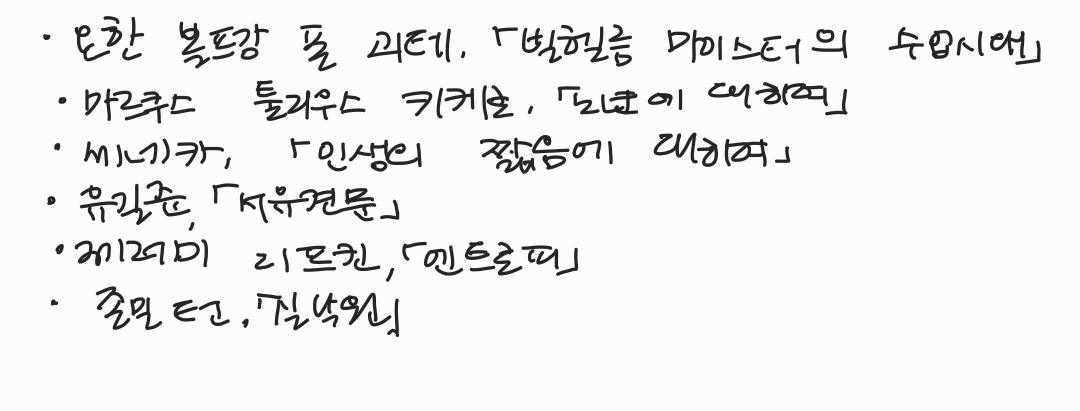 · 요한 볼프강 폰 괴테, 「빌헬름 마이스터의 수업시대」
· 마르쿠스 툴리우스 키케로, 「노년에 대하여」
· 세네카, 「인생의 짧음에 대하여」
· 유길준, 「서유견문」
· 제레미 리프킨, 「엔트로피」
· 존 밀턴, 「실낙원」